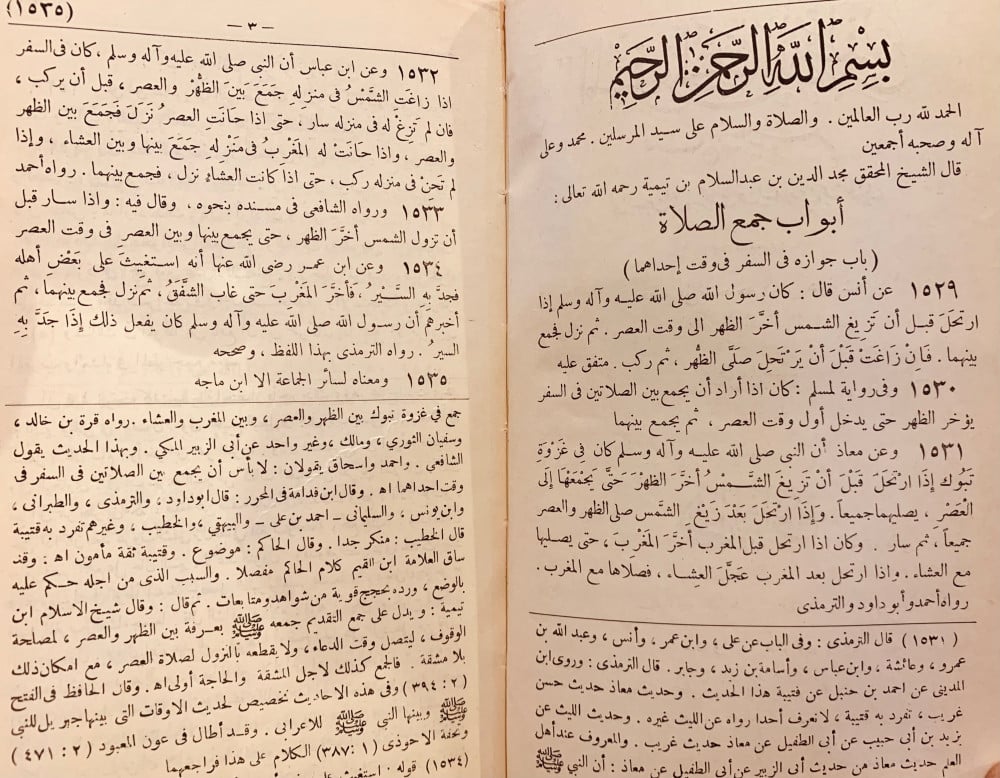 بسم الله الرحمن الرحيم
الحمد لله رب العالمين . والصلاة والسلام على سيد المرسلين . محمد وعلى
آله وصحبه أجمعين
قال الشيخ المحقق مجد الدين بن عبدالسلام بن تيمية رحمه الله تعالى :
أبواب جمع الصلاة
( باب جوازه فى السفر فى وقت إحداهما )
١٥٢٩ عن أنس قال : كان رسول الله صلى الله عليه وآله وسلم إذا
ارتحلَ قبل أن تَزيغ الشمس أخَّرَ الظهر الى وقت العصر . ثم نزل فجمع
بينهما . فَإنْ زَاغَتْ قَبْلَ أنْ يَرْتَحلَ صَلَّى الظُّهر ، ثم ركب . متفق عليه
١٥٣٠ وفى رواية لمسلم : كان اذا أراد أن يجمع بين الصلاتين فى السفر
يؤخر الظهر حتى يدخل أول وقت العصر ، ثم يجمع بينهما
١٥٣١ وعن معاذ أن النبى صلى الله عليه وآله وسلم كان فى غَزْوَةِ
تَبُوك إذَا ارْتَحلَ قَبْلَ أنْ تَزيغَ الشَّمْسُ أخَّرَ الظهرَ حَتَّى يَجْمَعَهَا إلَى
الْعَصْر ، يصليهما جميعاً . وَإذَا ارْتَحلَ بَعْدَ زَيْغ الشَّمس صلى الظهر والعصر
جميعاً ، ثم سار . وكان اذا ارتحل قبل المغرب أخَّرَ المَغْربَ ، حتى يصليها
مع العشاء . واذا ارتحل بعد المغرب عَجَّلَ العشاء ، فصلاها مع المغرب .
رواه أحمد وأبو داود والترمذى
( ١٥٣١ ) قال الترمذى : وفى الباب عن على ، وابن عمر ، وأنس ، وعبد الله بن
عمرو ، وعائشة ، وابن عباس ، وأسامة بن زيد ، وجابر . قال الترمذى : وروى ابن
المدينى عن احمد بن حنبل عن قتيبة هذا الحديث . وحديث معاذ حديث حسن
غريب ، تفرد به قتيبة ، لانعرف أحدا رواه عن الليث غيره . وحديث الليث عن
يزيد بن أبى حبيب عن أبى الطفيل عن معاذ حديث غريب . والمعروف عند أهل
العلم حديث معاذ من حديث أبى الزبير عن أبى الطفيل عن معاذ : أن النبى ﷺ
(١٥٣٥)
— ٣ —
١٥٣٢ وعن ابن عباس أن النبى صلى الله عليه وآله وسلم ، كان فى السفر
اذا زاغَت الشَّمْسُ فى منزلهِ جمَعَ بَينَ الظُّهْرْ والعصر ، قبل أن يركب ،
فان لم تَزِغْ له فى منزله سار ، حتى اذا حَانَتِ العصرُ نَزَلَ فَجَمَعَ بين الظهر
والعصر ، واذا حَانَتْ له المَغْرِبُ فى مَنْزِلِهِ جَمَعَ بينها وبين العشاء ، وإذا
لم تَحِنْ فى منزله ركب ، حتى اذا كانت العشاءُ نزل ، فجمع بينهما . رواه أحمد
١٥٣٣ ورواه الشافعى فى مسنده بنحوه ، وقال فيه : واذا سار قبل
أن تزول الشمس أخَّرَ الظهر ، حتى يجمع بينها وبين العصر فى وقت العصر
١٥٣٤ وعن ابن عمر رضى الله عنها أنه استغيثَ على بَعْضِ أهله
فجدَّ بِهِ السَّيْرُ ، فأخَّرَ المَغْرِبَ حتى غاب الشَّفَقُ ، ثم نزل فجمع بينهما ، ثم
أخبرهم أن رسول الله صلى الله عليه وآله وسلم كان يفعل ذلك إذَا جَدَّ بِهِ
السيرُ . رواه الترمذى بهذا اللفظ ، وصححه
١٥٣٥ ومعناه لسائر الجماعة الا ابن ماجه
جمع في غزوة تبوك بين الظهر والعصر ، وبين المغرب والعشاء . رواه قرة بن خالد ،
وسفيان الثورى ، ومالك ، وغير واحد عن أبى الزبير المكى . وبهذا الحديث يقول
الشافعى . واحمد واسحاق يقولان : لا بأس أن يجمع بين الصلاتين فى السفر فى
وقت احداهما اھ . وقال ابن قدامة فى المحرر : قال ابو داود ، والترمذى ، والطبرانى ،
وابن يونس ، والسليمانى - احمد بن على - والبيهقى ، والخطيب ، وغيرهم تفرد به قتيبة
قال الخطيب : منكر جدا . وقال الحاكم : موضوع . وقتيبة ثقة مأمون اھ . وقد
ساق العلامة ابن القيم كلام الحاكم مفصلا . والسبب الذى من اجله حكم عليه
بالوضع ، ورده بحجج قوية من شواهد ومتابعات . ثم قال : وقال شيخ الاسلام ابن
تيمية : ويدل على جمع التقديم جمعه ﷺ بعرفة بين الظهر والعصر ، لمصلحة
الوقوف ، ليتصل وقت الدعاء ، ولا يقطعه بالنزول لصلاة العصر ، مع امكان ذلك
بلا مشقة . فالجمع كذلك لاجل المشقة والحاجة أولى اھ . وقال الحافظ فى الفتح
( ٢ : ٣٩٤ ) وفى هذه الاحاديث تخصيص لحديث الاوقات التى بينها جبريل للنبى
ﷺ وبينها النبى ﷺ للاعرابى . وقد أطال فى عون المعبود ( ٢ : ٤٧١ )
وتحفة الاحوذى ( ١ : ٣٨٧ ) الكلام على هذا فراجعهما
( ١٥٣٤ ) قوله : استغيث على